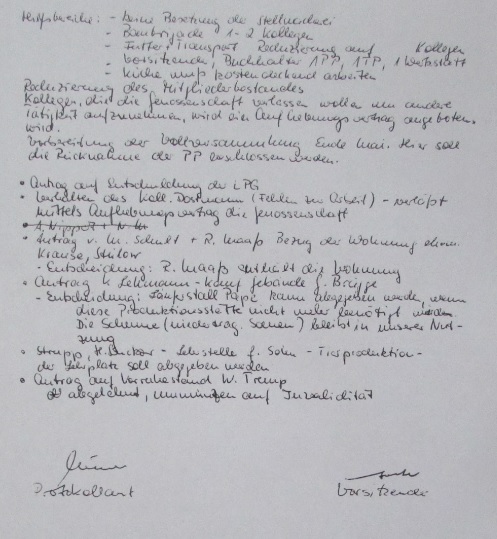 Hilfsbereiche: - keine Besetzung der Stellmacherei
- Baubrigade 1-2 Kollegen
- Futter, Transport Reduzierung auf Kollegen
- Vorsitzender, Buchhalter 1 PP, 1 TP, 1 Werkstatt
- Küche muß kostendeckend arbeiten
Reduzierung des Mitgliederbestandes
Kollegen, die die Genossenschaft verlassen wollen um andere
Tätigkeit aufzunehmen, wird ein Aufhebungsvertrag angeboten.
wird.
Vorbereitung der Vollversammlung Ende Mai. Hier soll
die Rücknahme der PP beschlossen werden.
• Antrag auf Entschuldung der LPG
• Verhalten des Koll. Dostmann (Fehlen zur Arbeit) - verläßt
mittels Aufhebungsvertrag die Genossenschaft
• Antrag v. M. Schmidt + R. Maaß Bezug der Wohnung ehem.
Krause,
- Entscheidung: R. Maaß enthält die Wohnung
• Antrag K. Lehmann - Kauf Gebäude f.
- Entscheidung: Laufstall Pape kann abgegeben werden, wenn
diese Produktionsstätte nicht mehr benötigt werden.
Die Scheune (niedertrag. Sauen) bleibt in unserer Nut-
zung
• Strupp, H. - Lehrstelle f. Sohn - Tierproduktion -
der Lehrplatz soll abgegeben werden
• Antrag auf Vorruhestand W. Tramp
abgelehnt, ummünzen auf Invalidität
Protokollant Vorsitzender